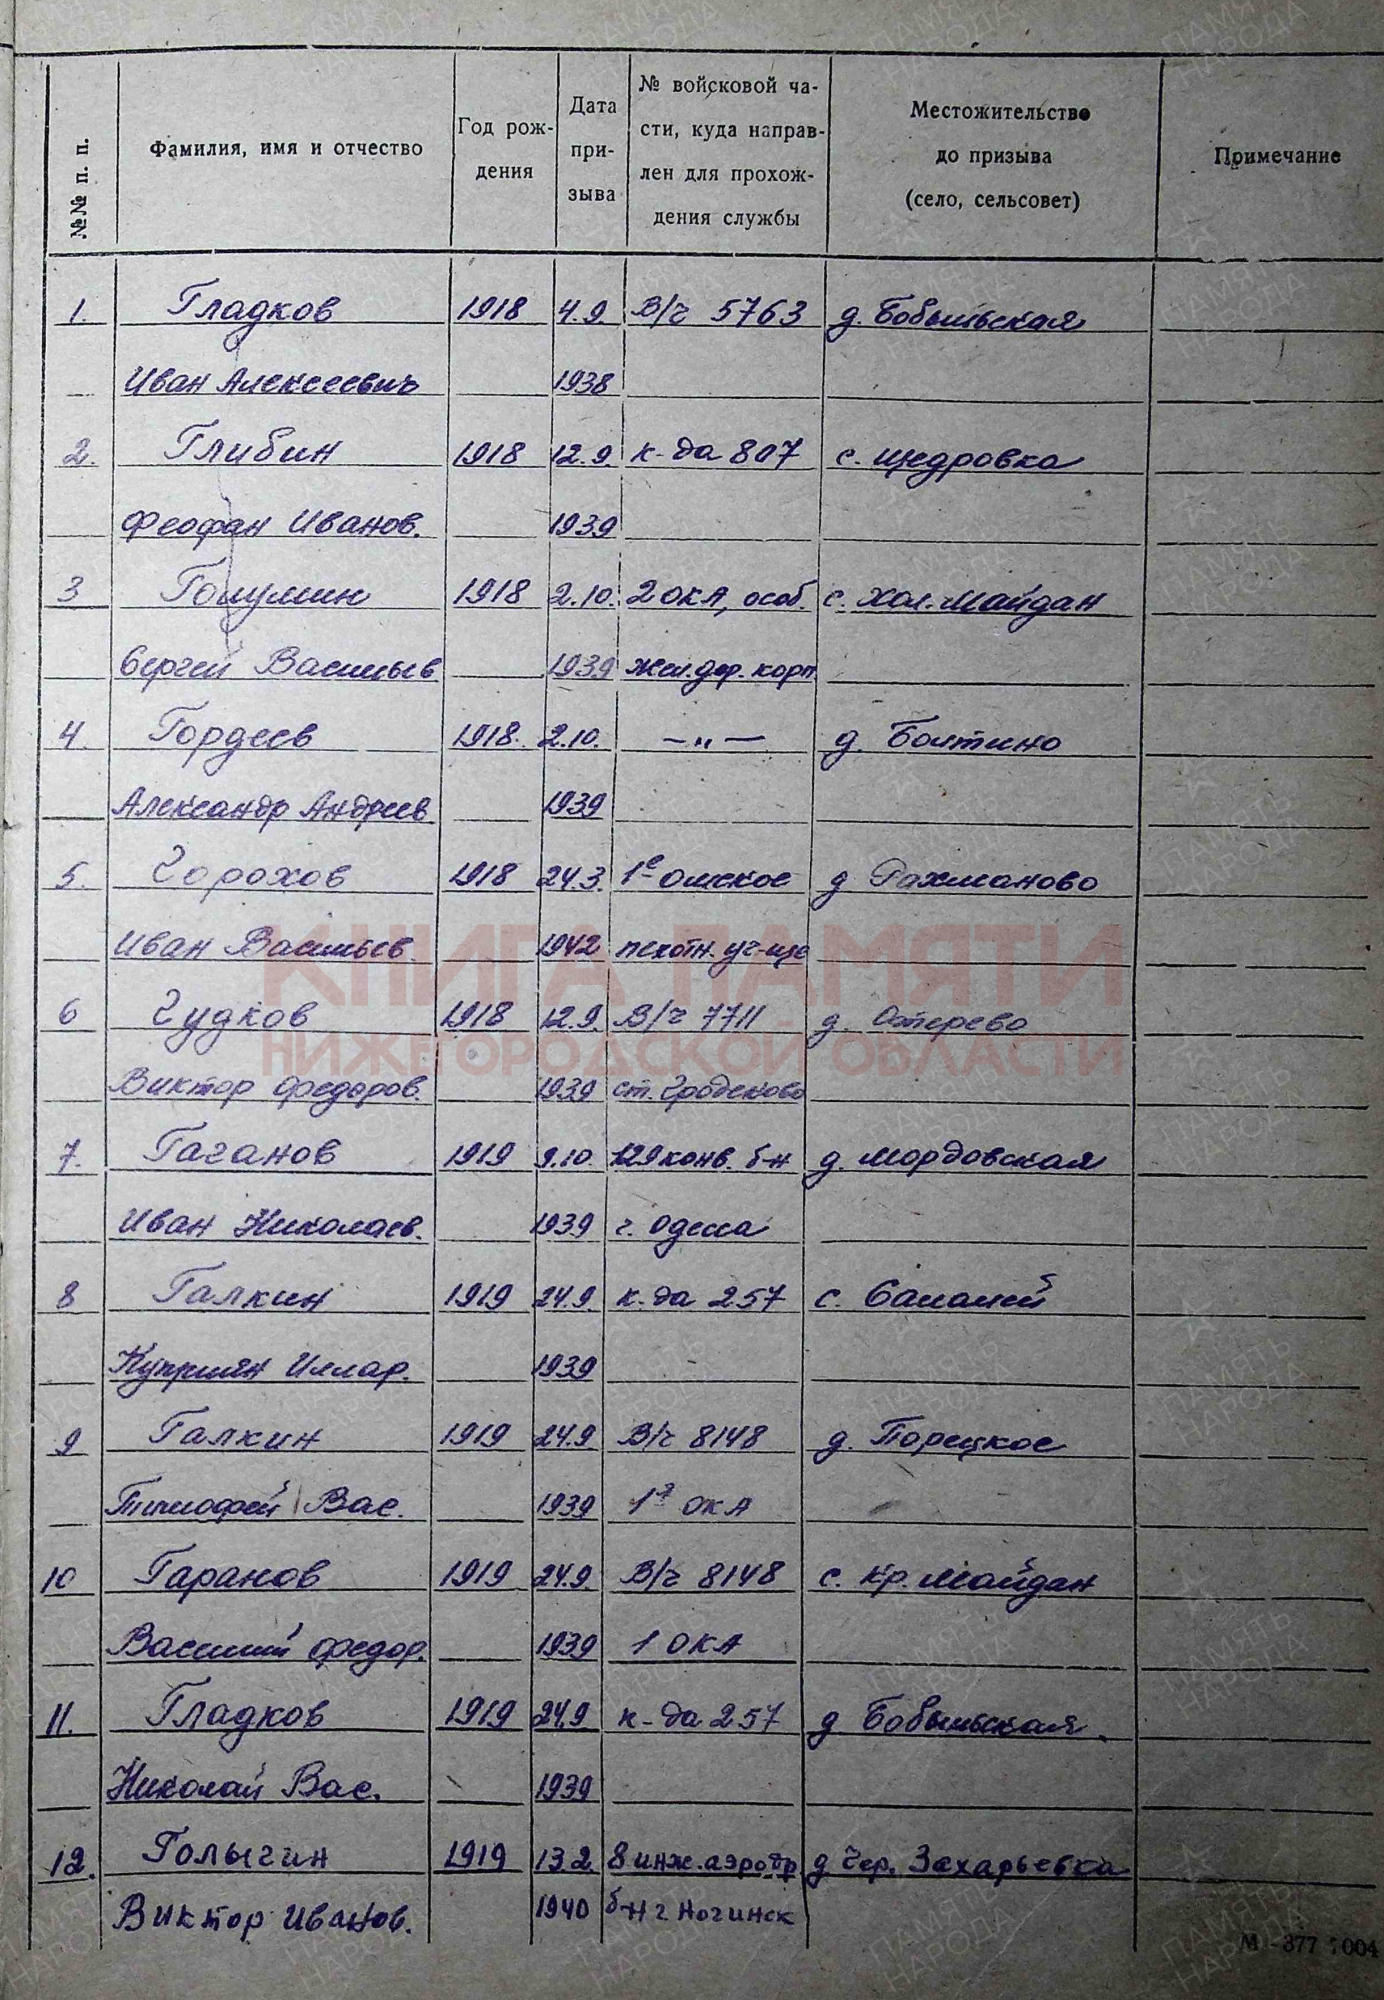 №№ п. п. Фамилия, имя и отчество Год рож- Дата № войсковой ча- Местожительство Примечание
дения при- сти, куда направ- до призыва
зыва лен для прохож- (село, сельсовет)
дения службы
1. Гладков 1918 4.9. В/ч 5763 д. Бобыльская
Иван Алексеевич 1938
2. Глибин 1918 12.9. к-да 807 с. Щедровка
Феофан Иванов. 1939
3 1918 2.10. 2 ОКА, особ. с. Хол. Майдан
Сергей Васильев 1939 жел.дор. корп
4. Гордеев 1918. 2.10. —„— д. Болтино
Александр Андреев 1939
5. Горохов 1918 24.3. 1е Омское д. Рахманово
Иван Васильев. 1942 пехотн. уч-ще
КНИГА ПАМЯТИ
6 Гудков 1918 12.9. В/ч 7711 д.
НИЖЕГОРОДСКОЙ ОБЛАСТИ
Виктор Федоров. 1939 ст. Гродеково
7. Гаганов 1919 9.10. 129 конв. б-н д. Мордовская
Иван Николаев. 1939 г. Одесса
8 Галкин 1919 24.9. к-да 257 с. Саламей
Куприян Иллар. 1939
9 Галкин 1919 24.9 В/ч 8148 д. Порецкое
Тимофей Вас. 1939 1я ОКА
10 Гаранов 1919 24.9. В/ч 8148 с. Кр. Майдан
Василий Федор. 1939 1 ОКА
11. Гладков 1919 24.9 к-да 257 д. Бобыльская.
Николай Вас. 1939
12. Голыгин 1919 13.2. 8 инж. аэродр д. Чер. Захарьевка
Виктор Иванов. 1940 б-н г. Ногинск
М-377 1004
ПАМЯТЬ
НАРОДА